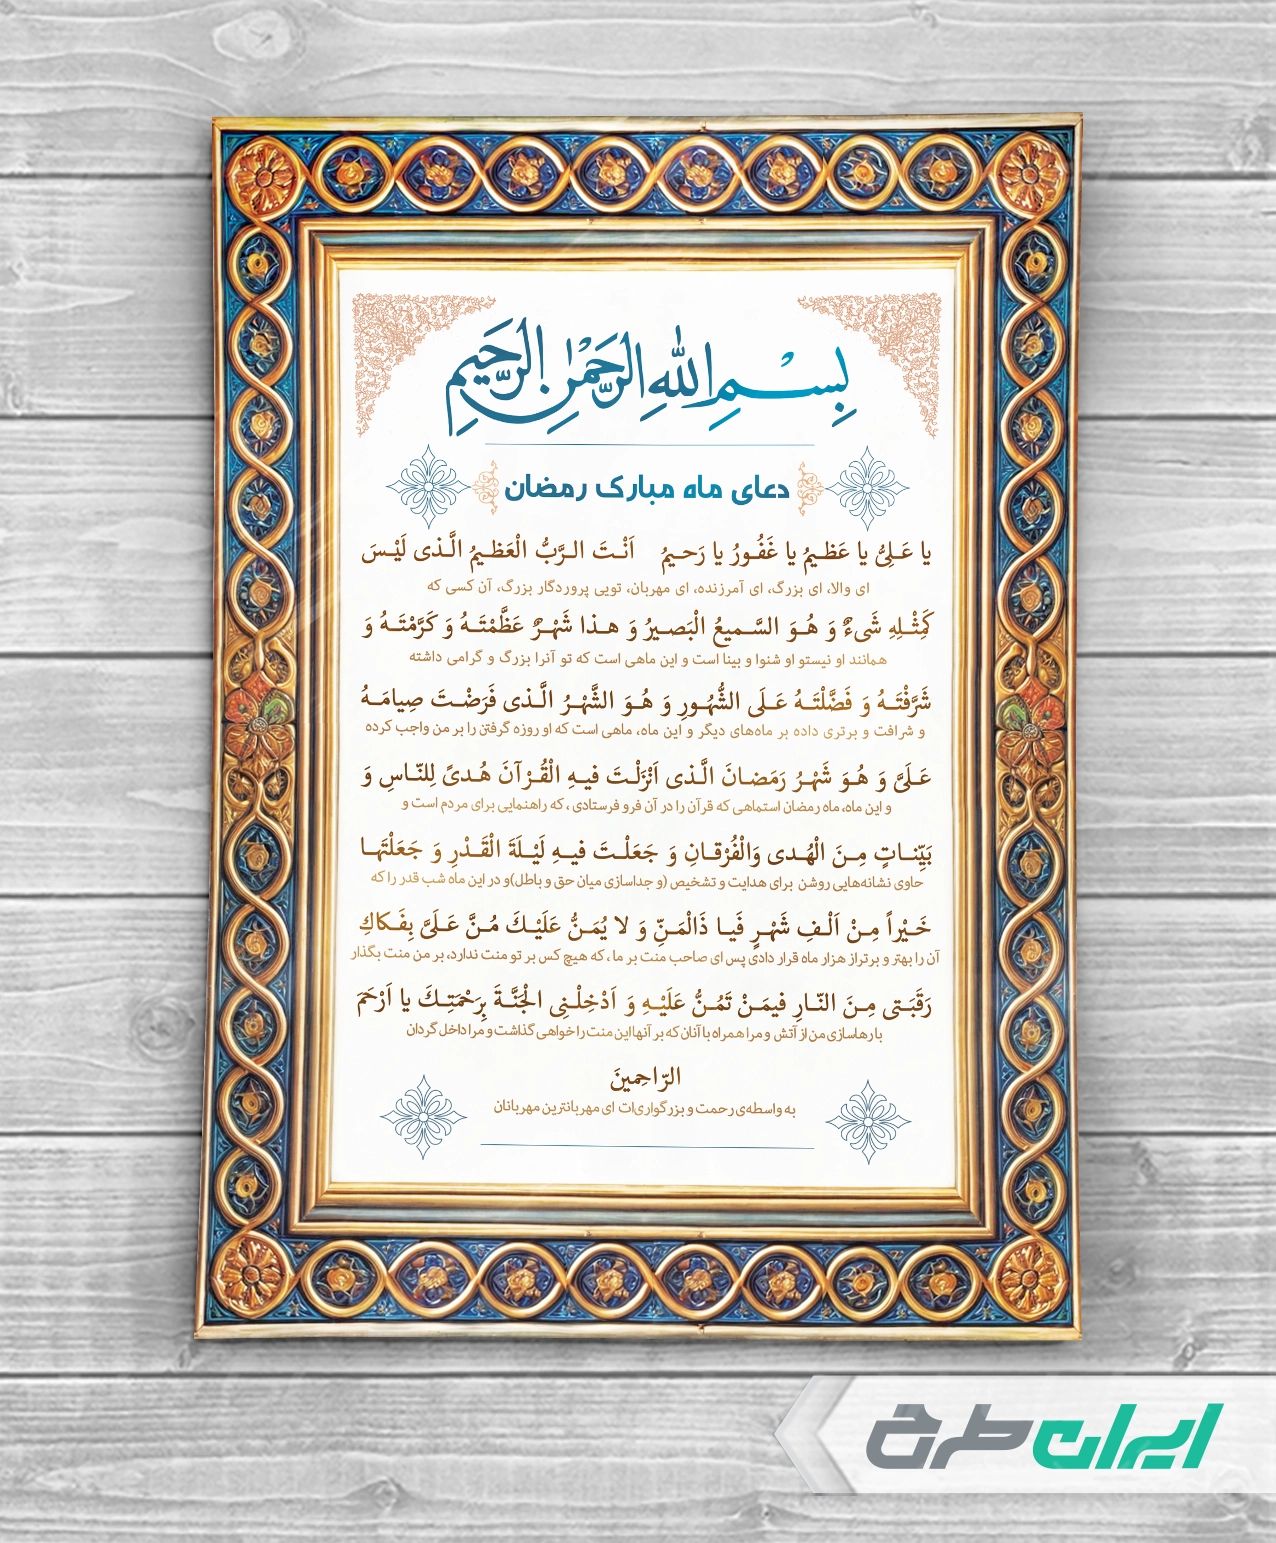 بِسْمِ اللهِ الرَّحْمٰنِ الرَّحیمِ
دعای ماه مبارک رمضان
یا عَلِیُّ یا عَظیمُ یا غَفُورُ یا رَحیمُ اَنْتَ الرَّبُّ الْعَظیمُ الَّذی لَیْسَ
ای والا، ای بزرگ، ای آمرزنده، ای مهربان، تویی پروردگار بزرگ، آن کسی که
کَمِثْلِهِ شَیءٌ وَ هُوَ السَّمیعُ الْبَصیرُ وَ هذا شَهْرٌ عَظَّمْتَهُ وَ کَرَّمْتَهُ وَ
همانند او نیستو او شنوا و بینا است و این ماهی است که تو آنرا بزرگ و گرامی داشته
شَرَّفْتَهُ وَ فَضَّلْتَهُ عَلَی الشُّهُورِ وَ هُوَ الشَّهْرُ الَّذی فَرَضْتَ صِیامَهُ
و شرافت و برتری داده بر ماه‌های دیگر و این ماه، ماهی است که او روزه گرفتن را بر من واجب کرده
عَلَیَّ وَ هُوَ شَهْرُ رَمَضانَ الَّذی اَنْزَلْتَ فیهِ الْقُرْآنَ هُدیً لِلنّاسِ وَ
و این ماه، ماه رمضان استماهی که قرآن را در آن فرو فرستادی ، که راهنمایی برای مردم است و
بَیِّناتٍ مِنَ الْهُدی وَالْفُرْقانِ وَ جَعَلْتَ فیهِ لَیْلَةَ الْقَدْرِ وَ جَعَلْتَها
حاوی نشانه‌هایی روشن برای هدایت و تشخیص (و جداسازی میان حق و باطل)و در این ماه شب قدر را که
خَیْراً مِنْ اَلْفِ شَهْرٍ فَیا ذَالْمَنِّ وَ لا یُمَنُّ عَلَیْكَ مُنَّ عَلَیَّ بِفَکاكِ
آن را بهتر و برتراز هزار ماه قرار دادی پس ای صاحب منت بر ما ، که هیچ کس بر تو منت ندارد، بر من منت بگذار
رَقَبَتی مِنَ النّارِ فیمَنْ تَمُنُّ عَلَیْهِ وَ اَدْخِلْنِی الْجَنَّةَ بِرَحْمَتِكَ یا اَرْحَمَ
با رهاسازی من از آتش و مرا همراه با آنان که بر آنها این منت را خواهی گذاشت و مرا داخل گردان
الرّاحِمینَ
به واسطه‌ی رحمت و بزرگواری‌ات ای مهربانترین مهربانان
ایران طرح